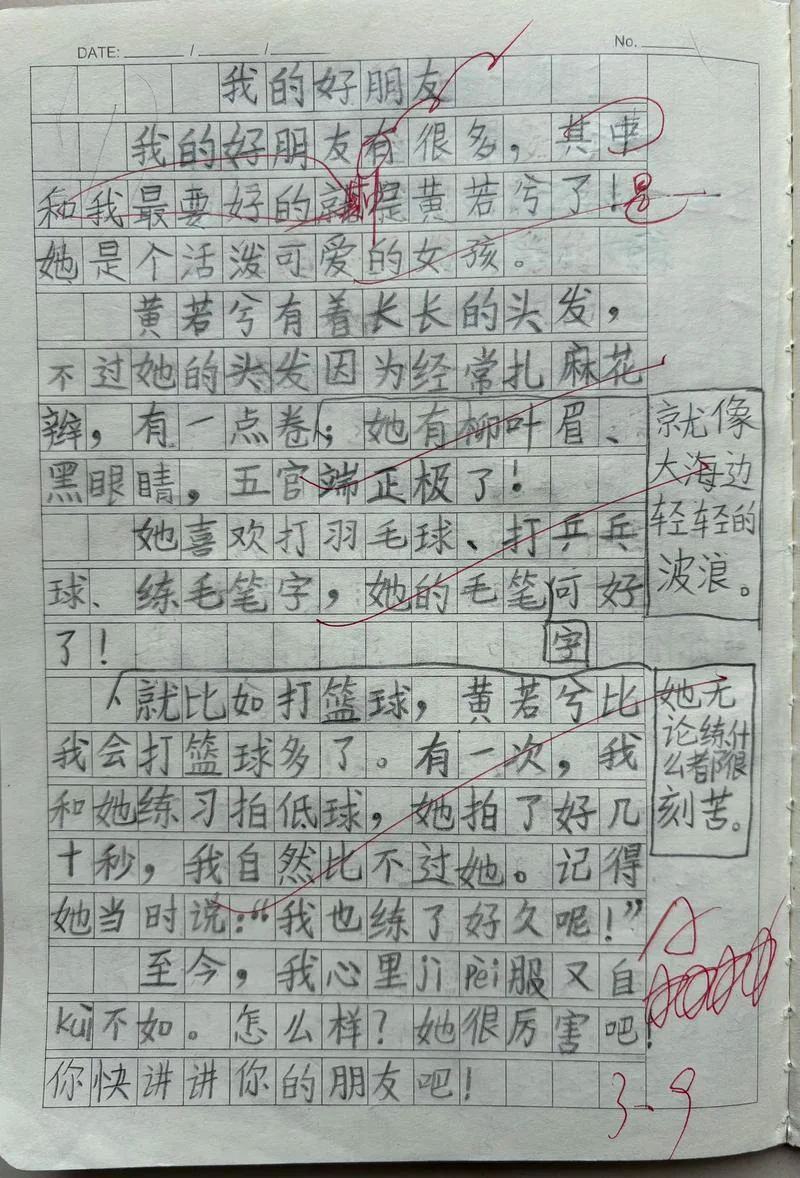 DATE: ____ / ____ / ____
No. ____
我的好朋友
我的好朋友有很多，其中
和我最要好的就是黄若兮了！是
她是个活泼可爱的女孩。
黄若兮有着长长的头发，
不过她的头发因为经常扎麻花
辫，有一点卷；她有柳叶眉、
就像
大海边
轻轻的
波浪。
黑眼睛，五官端正极了！
她喜欢打羽毛球、打乒乓
球、练毛笔字，她的毛笔可好
字
了！
就比如打篮球，黄若兮比
她无
论练什
么都很
刻苦。
我会打篮球多了。有一次，我
和她练习拍低球，她拍了好几
十秒，我自然比不过她。记得
她当时说：“我也练了好久呢！”
至今，我心里jì pèi服又自
kuì不如。怎么样？她很厉害吧！
你快讲讲你的朋友吧！
A
3-9